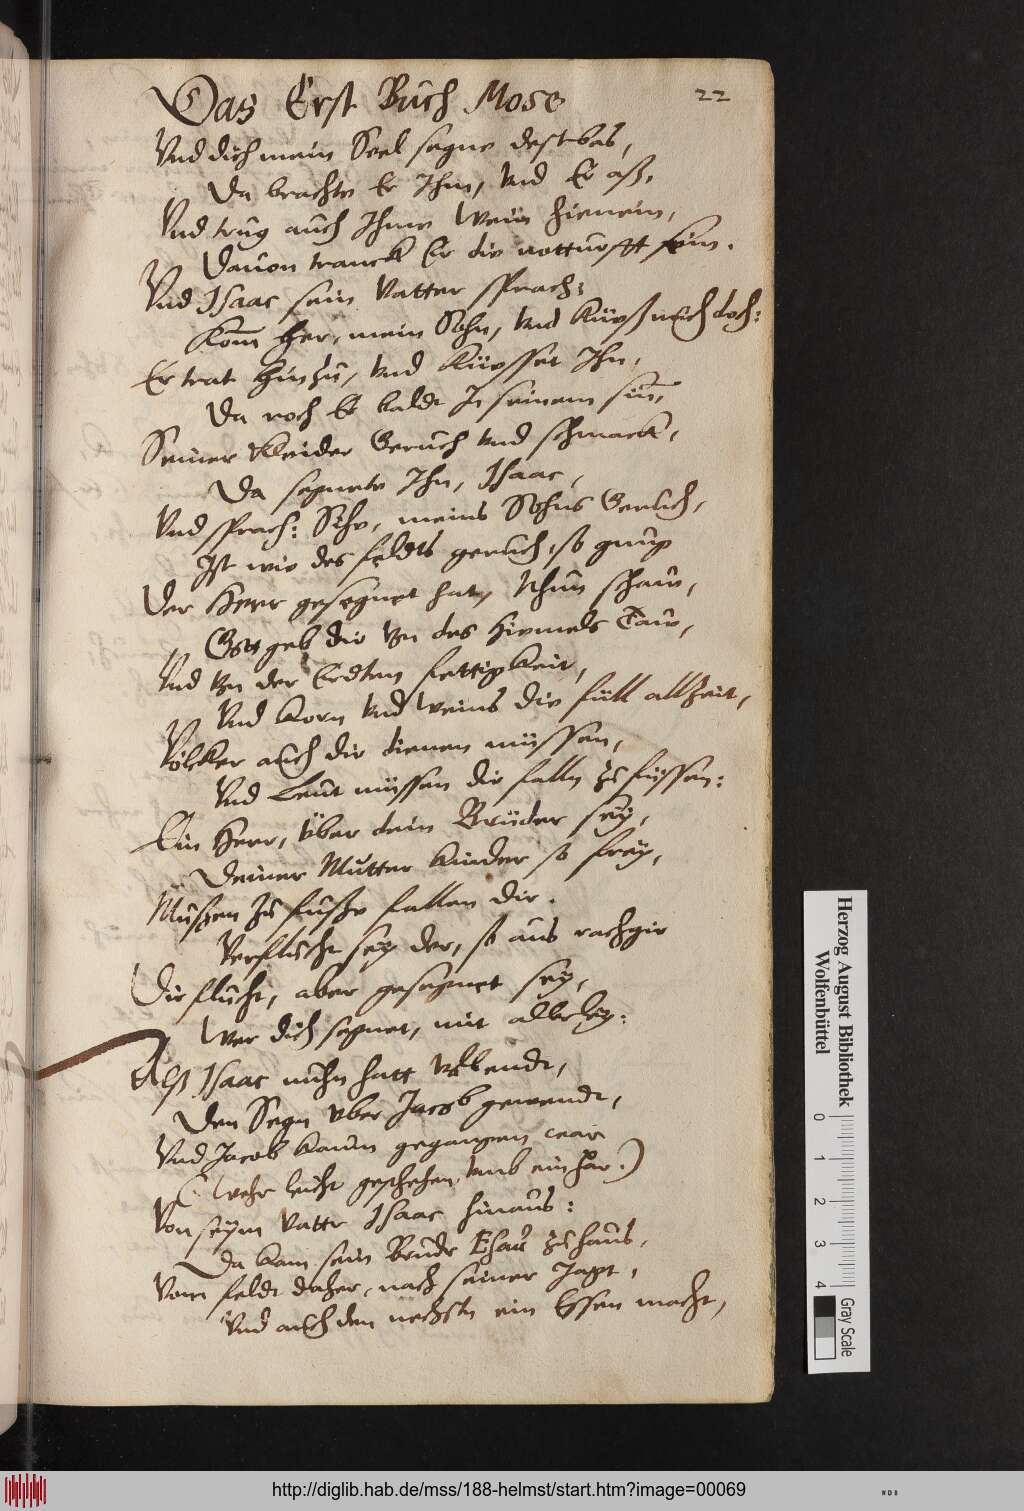 Das Erst Buch Mose 22
Vnd dich mein Seel segne dest bas,
Da brachte Er Ihm, vnd Er aß,
Vnd trug auch Ihme Wein hienein,
Dauon tranck Er die notturfft sein.
Vnd Isaac sein Vatter sprach:
Kom̄ her, mein Sohn, vnd küeß mich doch:
Er trat hinzu, vnd küesset Ihn,
Da roch Er baldt In seinem sin̄,
Seiner Kleider Geruch vnd schmack,
Da segnete Ihn, Isaac,
Vnd sprach: Sihe, meins Sohns Geruch,
Ist wie des feldts geruch, so gnug
Der Herr gesegnet hat, Nhun schaw,
Gott geb dir von des Hiemels Taw,
Vnd von der Erdten fettigkeit,
Vnd Korn vnd Weins die füll allzeit,
Völcker auch dir dienen müssen,
Vnd Leut müssen dir falln zu füssen:
Ein Herr, über dein Brüder sey,
Deiner Mutter kinder so frey,
Müßen zu fuße fallen dir.
Verflucht sey der, so aus rachgir
Dir flucht, aber gesegnet sey,
Wer dich segnet, mit allerley:
Alß Isaac nuhn hatt vollendt,
Den Segn vber Jacob gewendt,
Vnd Jacob kaum gegangen war
(Wehr leicht geschehen vmb ein Har.)
Von seym Vattr Isaac hinaus:
Da kam sein Brudr Esau zu haus,
Vom feldt daher, nach seiner Jagt,
Vnd auch den nechstn ein Essen macht,
Herzog August Bibliothek
Wolfenbüttel
0 1 2 3 4
Gray Scale
http://diglib.hab.de/mss/188-helmst/start.htm?image=00069